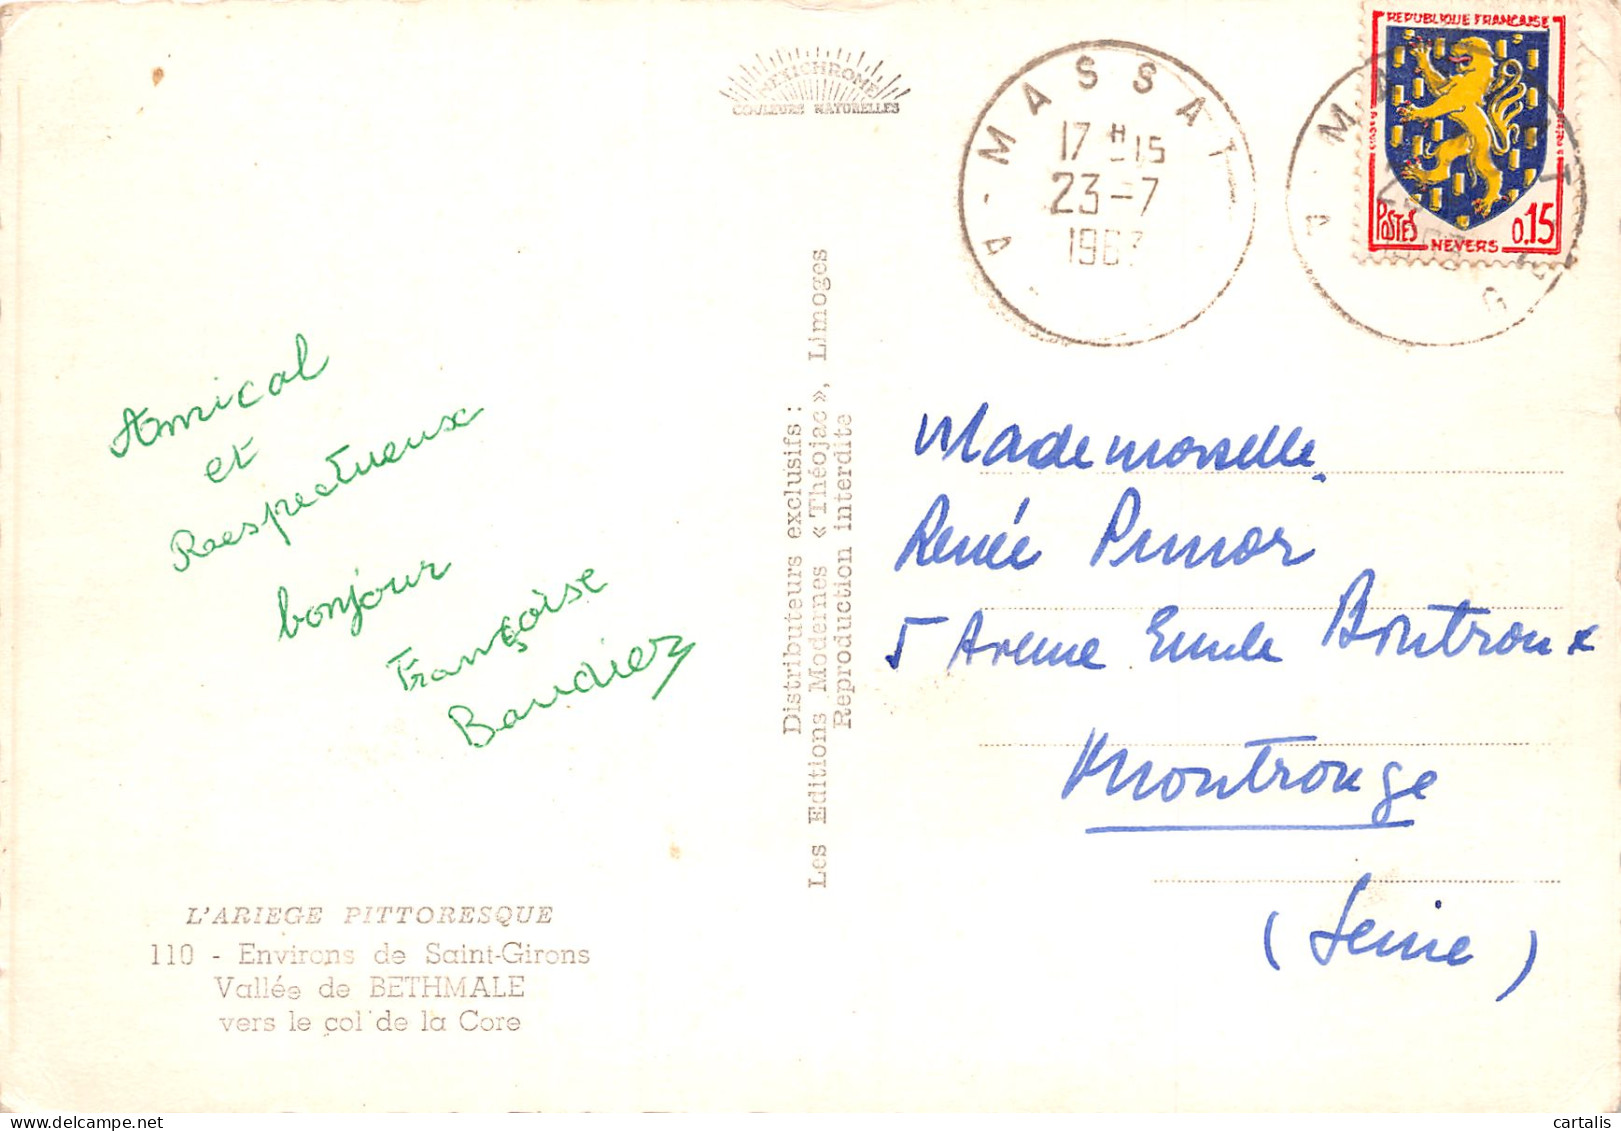 Amical
et
Raespectueux
bonjour
Françoise
Baudiez
L'ARIEGE PITTORESQUE
110 - Environs de Saint-Girons
Vallée de BETHMALE
vers le col de la Core
MEXICHROME
COULEURS NATURELLES
Distributeurs exclusifs :
Les Editions Modernes « Théojac », Limoges
Reproduction interdite
A - MASSAT
17 H 15
23 - 7
1963
REPUBLIQUE FRANÇAISE
POSTES
NEVERS
0,15
Mademoiselle
Renée
5 Avenue Emile Boutroux
Montrouge
(Seine)
cartalis